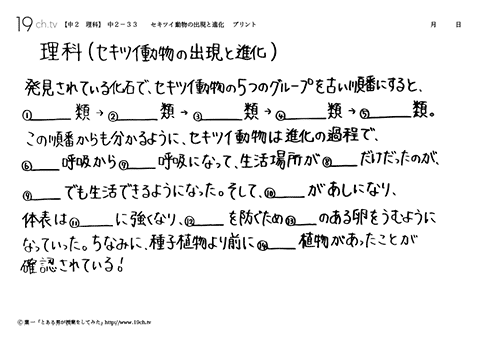 19ch.tv 【中2 理科】 中2-33 セキツイ動物の出現と進化 プリント 月 日
理科(セキツイ動物の出現と進化)
発見されている化石で、セキツイ動物の5つのグループを古い順番にすると、
①____類→②____類→③____類→④____類→⑤____類。
この順番からも分かるように、セキツイ動物は進化の過程で、
⑥____呼吸から⑦____呼吸になって、生活場所が⑧____だけだったのが、
⑨____でも生活できるようになった。そして、⑩____があしになり、
体表は⑪____に強くなり、⑫____を防ぐため⑬____のある卵をうむように
なっていった。ちなみに、種子植物より前に⑭____植物があったことが
確認されている!
© 葉一「とある男が授業をしてみた」http://www.19ch.tv